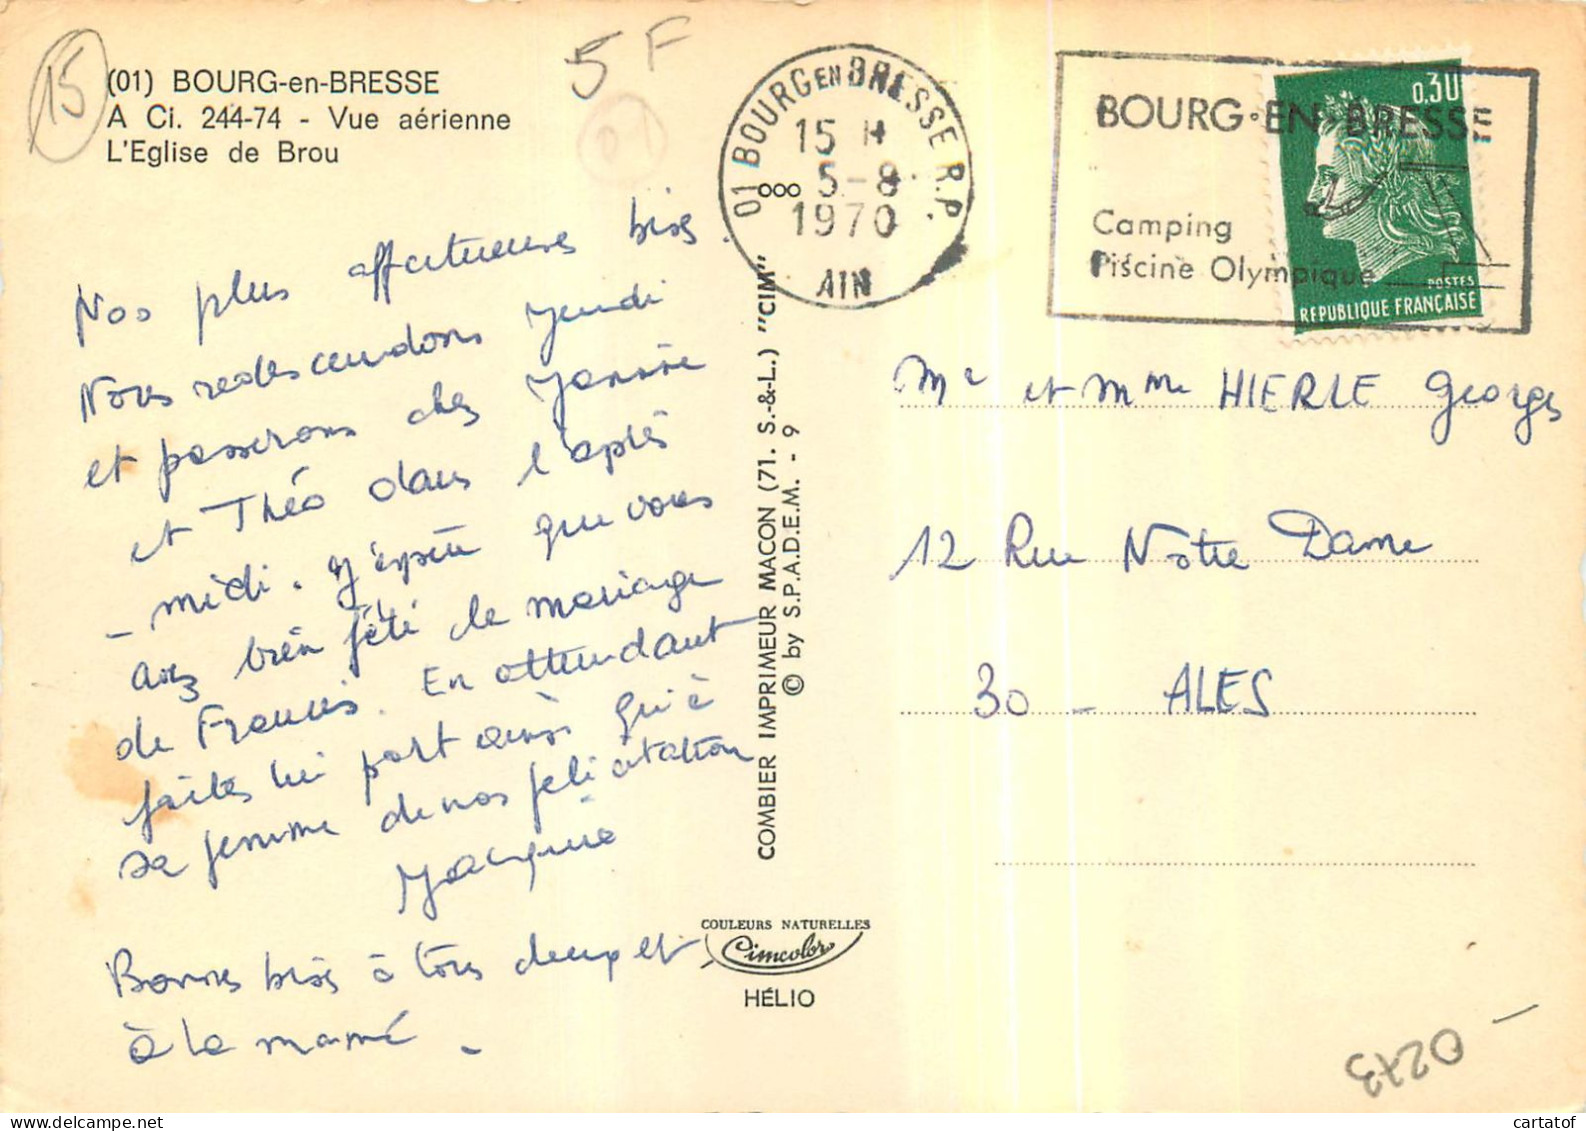 15
(01) BOURG-en-BRESSE
A Ci. 244-74 - Vue aérienne
L'Eglise de Brou
5 F
01
01 BOURG EN BRESSE R.P.
15 H
5-8
1970
AIN
BOURG·EN·BRESSE
Camping
Piscine Olympique
0,30
POSTES
REPUBLIQUE FRANÇAISE
Nos plus affectueuses bises.
Nous redescendons Jeudi
et passerons chez
et Théo dans l'après
- midi. J'espère que vous
avez bien fêté le mariage
de Francis. En attendant
faites lui part ainsi qu'à
sa femme de nos félicitation
Bonnes bises à tous deux et
à la mamé.
COMBIER IMPRIMEUR MACON (71. S.-&-L.) "CIM"
© by S.P.A.D.E.M. - 9
COULEURS NATURELLES
Cimcolor
HÉLIO
Mr et Mme HIERLE Georges
12 Rue Notre Dame
30 - ALES
0273
cartatof